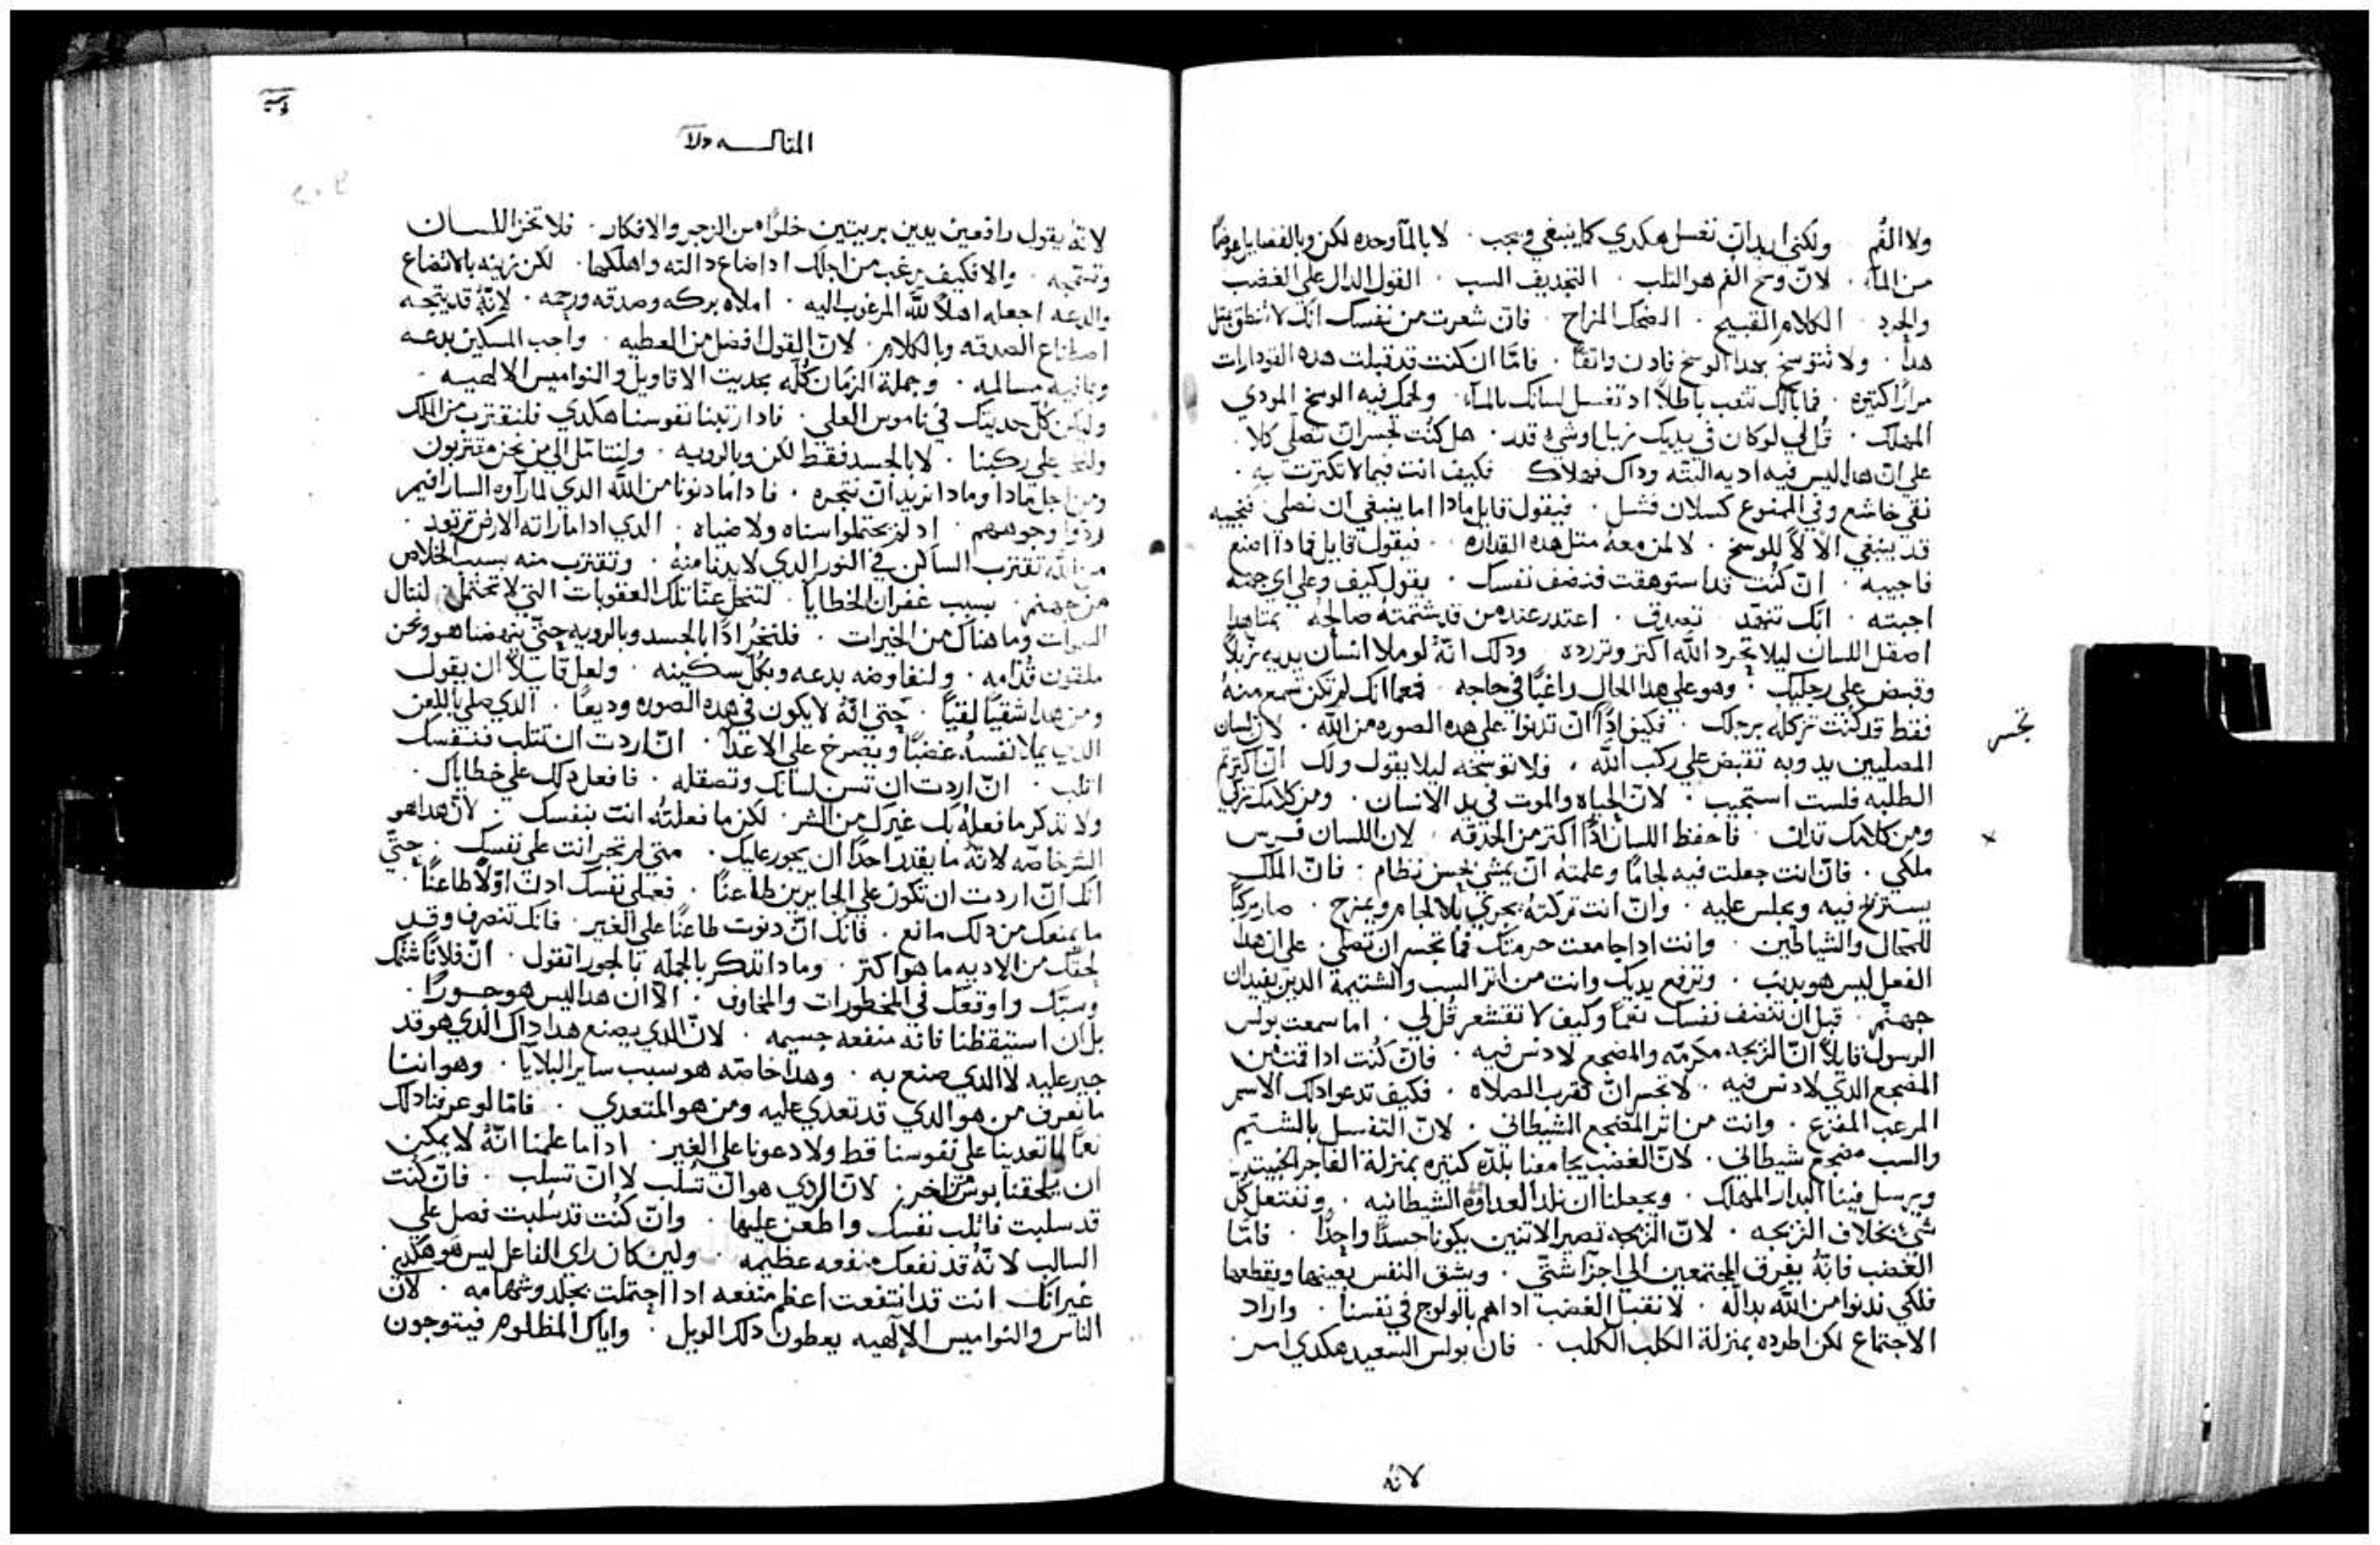 ولا الفُم ولكني اريد ان تغسل هكدي كما ينبغي ويجب. لا بالمآ وحده لكن وبالفضايل عوضًا
من المآء. لانّ وسخ الفم هو التلب. التجديف السب. القول الدال علي الغضب
والحرد. الكلام القبيح. الضحك المزاح. فان شعرت من نفسك انك لا تنطق بمثل
هدا. ولا تتوسخ بهدا الوسخ فادن واثقًا. فامّا ان كنت قد قبلت هده القودارات
مرارًا كتيره. فما بالك تتعب باطلاً اد تغسل لسانك بالمآء. ولحمك فيه الوسخ المودي
المهلك. قُل لي لو كان في يديك زبل او شي قدر. هل كنُت تجسر ان تصلي كلا.
علي ان هدا ليس فيه اديه البتّه وداك فهلاك. فكيف انت فيما لا تكترت به.
نقي خاشع وفي الممنوع كسلان فشل. فيقول قايل مادا اما ينبغي ان نصلي. فنجيبه
قد ينبغي الا لا للوسخ. لا لمن معهُ متل هده القداره. فيقول قايل فمادا اصنع
فاجيبه. ان كنُت قد استوهقت فنضف نفسك. يقول كيف وعلي اي جهه
اجبته. انّك تنهّد. تصدق. اعتدر عند من قد شتمتهُ صالحهُ بمتل هدا
اصقل اللسان ليلا تحرد الله اكتر وتزرده. ودلك انهُ لو ملا انسان يديه زبلاً
وقبض علي رجليك. وهو علي هدا الحال راغبًا في حاجه. فمعما انك لم تكن تسمع منهُ
فقط قد كنُت تركله برجلك. فكيف ادًا ان تدنوا علي هده الصوره من الله. لان لسان
المصليين يد وبه تقبض علي ركب الله. فلا توسخه ليلا يقول ولك ان اكترتم
الطلبه فلست استجيب. لان الحياه والموت في يد الانسان. ومن كلامك تزكي
ومن كلامك تدان. فاحفظ اللسان ادًا اكتر من الحدقه. لان اللسان فرس
ملكي. فانّ انت جعلت فيه لجامًا وعلمتهُ ان يمشي بحسن نظام. فانّ الملك
يستريح فيه ويجلس عليه. وانّ انت تركتهُ يجري بلا لجام ويمرح. صار مركبًا
للمحال والشياطين. وانت ادا جامعت حرمتك فما تجسر ان تصلي. علي ان هدا
الفعل ليس هو بديب. وترفع يديك وانت من اتر السب والشتيمة الدين يفيدان
جهنّم. قبل ان تنضف نفسك نعمًا وكيف لا تقشعر قُل لي. اما سمعت بولس
الرسول قايلاً ان الزيجه مكرمّه والمضجع لا دنس فيه. فان كنُت ادا قمت من
المضجع الدي لا دنس فيه. لا تجسر ان تقرب الصلاه. فكيف تدعوا دلك الاسم
المرعب المفزع. وانت من اتر المضجع الشيطاني. لانّ التغسل بالشتيم
والسب مضجع شيطاني. لانّ الغضب يجامعنا بلدّه كتيره بمنزلة الفاجر الخبيت
ويرسل فينا البدار المهلك. ويجعلنا ان نلد العداوه الشيطانيه. ونفتعل كلّ
شيٍ بخلاف الزيجه. لانّ الزيجه تصير الاتنين يكونا جسدًا واحدًا. فامّا
الغضب فانّهُ يفرق المجتمعين الي اجزا شتّي. ويشق النفس بعينها ويقطعها
فلكي تدنوا من الله بداله. لا تقبل الغضب ادا هم بالولوج في نفسنا. واراد
الاجتماع لكن اطرده بمنزلة الكلب الكلب. فان بولس السعيد هكدي امر
لانهُ
المقالـــه
لانهُ يقول رافعين يدين بريتين خلوًا من الزجر والافكار. فلا تخز اللسان
وتشجيه. والا فكيف يرغب من اجلك ادا ضاع دالته واهلكها. لكن زينه بالاتضاع
والدعه اجعله اهلاً للّه المرغوب اليه. املاه بركه وصدقه ورحمه. لانّهُ قد يتجه
اصطناع الصدقه وبالكلام. لانّ القول افضل من العطيه. واجب المسكين بدعه
ومجانيه مسالمه. وجملة الزمان كلّه بحديت الاقاويل والنواميس الالهيه.
وليكن كلّ حديتك في ناموس العلي. فادا زينا نفوسنا هكدي فلنقترب من الملك
ولنخر علي ركبنا. لا بالجسد فقط لكن وبالرويه. ولنتامّل الي من نحن مقتربون
ومن اجل مادا وما دا نريد ان نتجره. فادا ما دنونا من اللّه الدي لمّا راوه السارافيم
ردّوا وجوههم. اد لم يحتملوا سناه ولا ضياه. الدي ادا ما راته الارض ترتعد.
من اللّه تقترب الساكن في النور الدي لا يدنا منهُ. وتقترب منه بسبب الخلاص
من جهنم. بسبب غفران الخطايا. لتنحل عنّا تلك العقوبات التي لا تحتمل. لننال
السموات وما هناك من الخيرات. فلنخرُ ادًا بالجسد وبالرويه حتّي ينهضنا هو ونحن
ملقون قُدّامه. ولنفاوضه بدعه وبكل سكينه. ولعل قايلاً ان يقول
ومن هدا شقيًا لقيًا. حتّي انّهُ لا يكون في هده الصوره وديعًا. الدي صلي باللعن
الدي يملا نفسهُ غضبًا ويصرخ علي الاعدا. ان اردت ان تتلب فنفسك
اتلب. انّ اردت ان تسن لسانك وتصقله. فافعل دلك علي خطاياك.
ولا تدكر ما فعلهُ بك غيرك من الشر. لكن ما فعلتهُ انت بنفسك. لانّ هدا هو
الشر خاصّه لانّهُ ما يقدر احدًا ان يجور عليك. متي لم تجر انت علي نفسك. حتّي
انّك انّ اردت ان تكون علي الجايرين طاعنًا. فعلي نفسك ادن اوّلاً طاعنًا.
ما يمنعك من دلك مانع. فانّك انّ دنوت طاعنًا علي الغير. فانّك تنصرف وقد
لحقك من الاديه ما هو اكتر. ومادا تدكر بالجملّه بالجور اتقول. انّ فلانًا شتمك
وسبّك واوقعك في المخطورات والمخاوف. الا ان هدا ليس هو جـــورًا.
بل ان استيقظنا فانّه منفعه جسيمه. لانّ الدي يصنع هدا داك الدي هو قد
جير عليه لا الدي صنع به. وهدا خاصّه هو سبب ساير البلايا. وهو اننا
ما نعرف من هو الدي قد تعدي عليه ومن هو المتعدي. فامّا لو عرفنا دلك
نعمًا لما تعدينا علي نفوسنا قط ولا دعونا علي الغير. اداما علمنا انّهُ لا يمكن
ان يلحقنا بوس من اخر. لانّ الردي هو ان تُسلب لا انّ تسلب. فانّ كنُت
قد سلبت فاتلب نفسك واطعن عليها. وانّ كنُت قد سُلبت فصل علي
السالب لانّهُ قد نفعك منفعه عظيمه. ولين كان راي الفاعل ليس هو هكدي.
غير انّك انت قد انتفعت اعظم منفعه ادا احتملت بجلد وشهامه. لانّ
الناس والنواميس الالهيه يعطون دلك الويل. واياك المظلوم فيتوجون